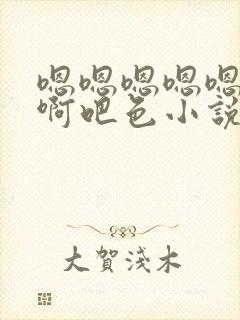 嗯嗯嗯嗯嗯
啊吧色小說
大賀淺木